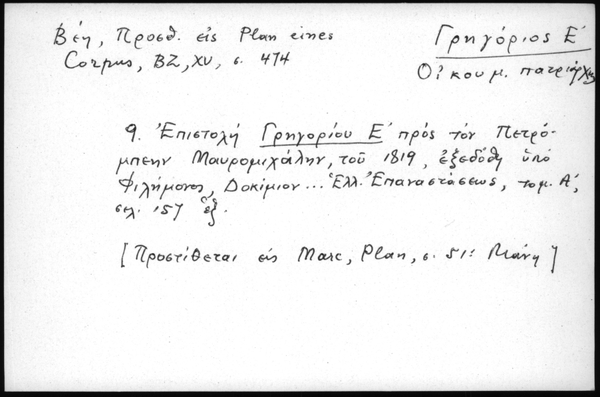 Βέη, Προσθ. εἰς Plan eines
Corpus, BZ, XV, σ. 474
Γρηγόριος Ε´
Οἰκουμ. πατριάρχης
9. Ἐπιστολὴ Γρηγορίου Ε´ πρὸς τὸν Πετρό-
μπεην Μαυρομιχάλην, τοῦ 1819, ἐξεδόθη ὑπὸ
Φιλήμονος, Δοκίμιον... Ἑλλ. Ἐπαναστάσεως, τομ. Α´,
σελ. 157 ἑξ.
[Προστίθεται εἰς Marc, Plan, σ. 51: Μάνη]